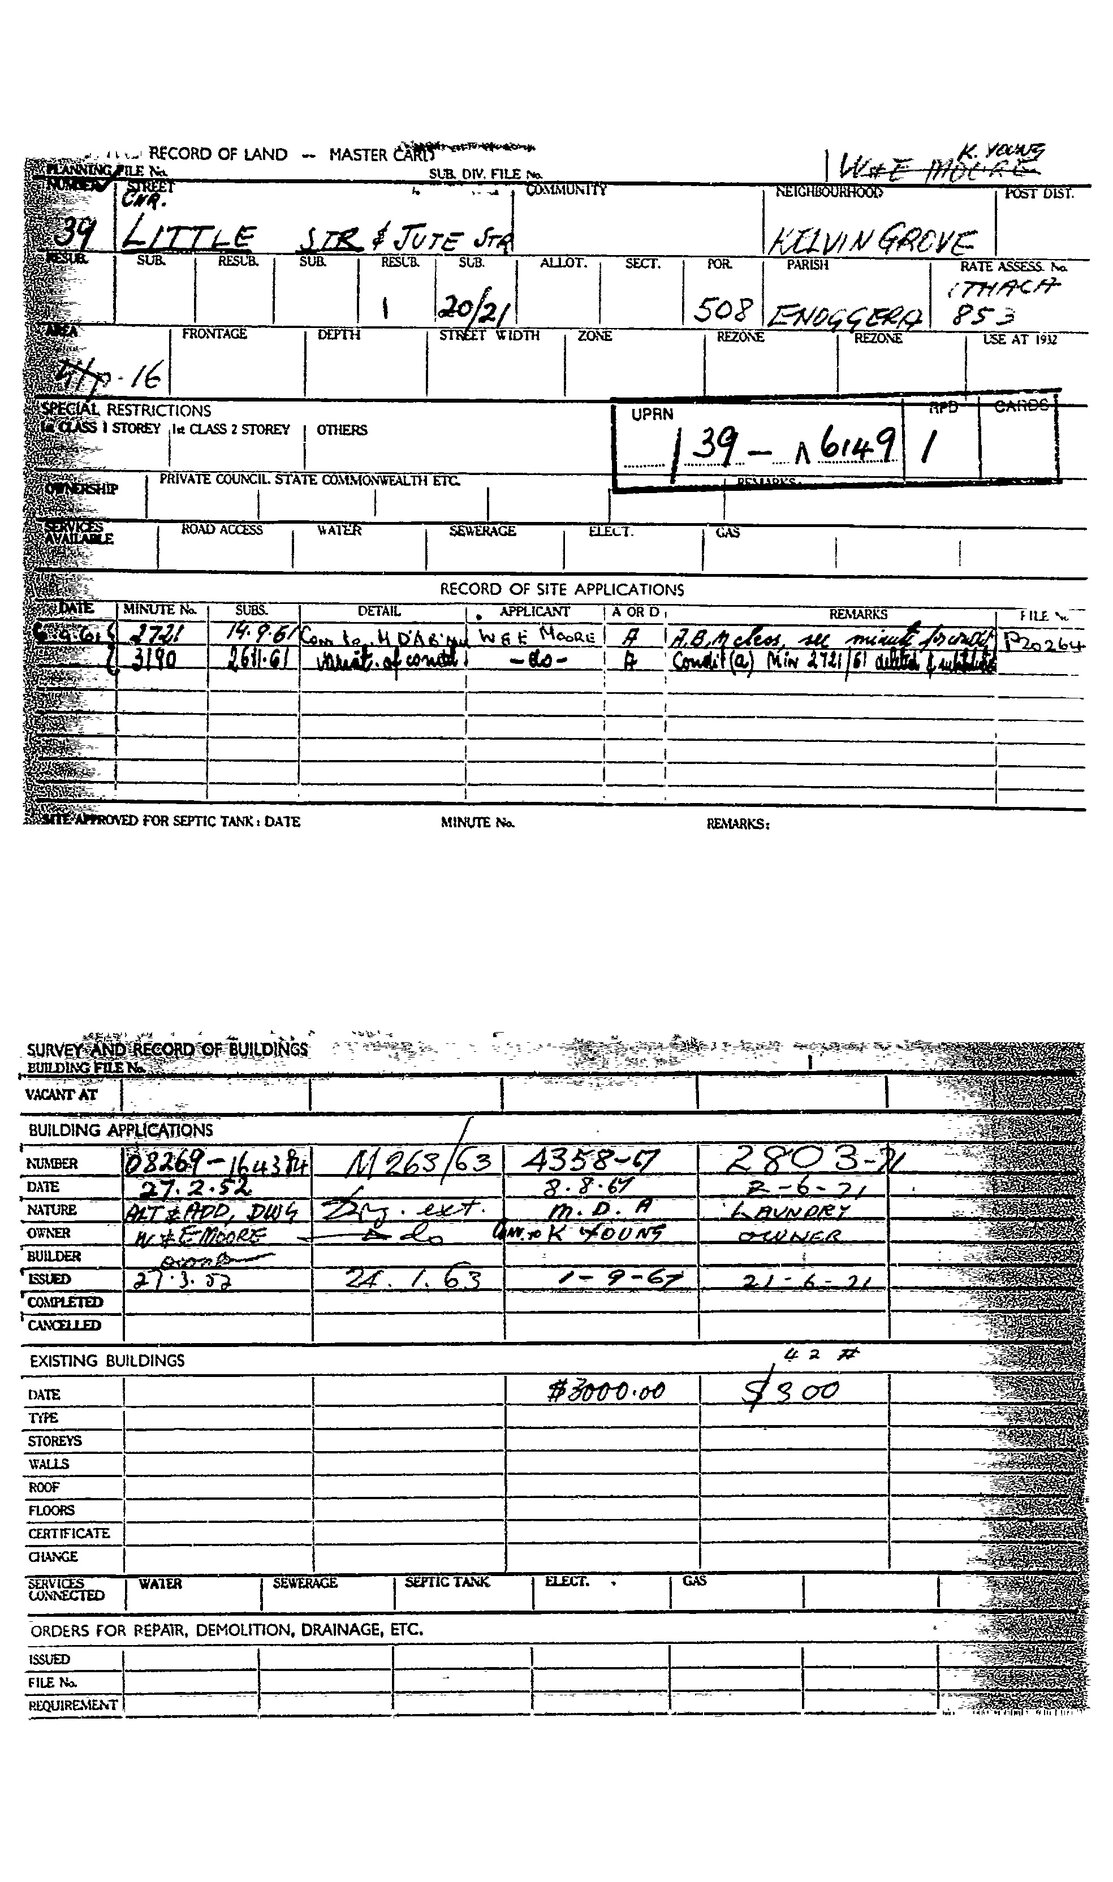 RECORD OF LAND -- MASTER CARD
K. YOUNG
W & E MOORE
PLANNING FILE No. SUB. DIV. FILE No.
NUMBER STREET COMMUNITY NEIGHBOURHOOD POST DIST.
CNR.
39 LITTLE STR & JUTE STR KELVIN GROVE
RESUB. SUB. RESUB. SUB. RESUB. SUB. ALLOT. SECT. POR. PARISH RATE ASSESS. No.
ITHACA
1 20/21 508 ENOGGERA 853
AREA FRONTAGE DEPTH STREET WIDTH ZONE REZONE REZONE USE AT 1932
16
SPECIAL RESTRICTIONS
1st CLASS 1 STOREY 1st CLASS 2 STOREY OTHERS
UPRN RPD CARDS
39 - 6149 1
OWNERSHIP PRIVATE COUNCIL STATE COMMONWEALTH ETC. REMARKS:
SERVICES AVAILABLE ROAD ACCESS WATER SEWERAGE ELECT. GAS
RECORD OF SITE APPLICATIONS
DATE MINUTE No. SUBS. DETAIL APPLICANT A OR D REMARKS FILE No.
6.9.61 2721 14.9.61 W & E MOORE A see minute for condit P20264
3190 variat. of condit - do - A Condit (a) Min 2721/61 deleted &
SITE APPROVED FOR SEPTIC TANK: DATE MINUTE No. REMARKS:
SURVEY AND RECORD OF BUILDINGS
BUILDING FILE No.
VACANT AT
BUILDING APPLICATIONS
NUMBER 08269-164384 M263/63 4358-67 2803-71
DATE 27.2.52 8.8.67 2-6-71
NATURE ALT & ADD, DWG Dwg. ext. M.D.A LAUNDRY
OWNER W & E MOORE do K YOUNG OWNER
BUILDER
ISSUED 27.3.52 24.1.63 1-9-67 21-6-71
COMPLETED
CANCELLED
EXISTING BUILDINGS 42 #
DATE $3000.00 $300
TYPE
STOREYS
WALLS
ROOF
FLOORS
CERTIFICATE
CHANGE
SERVICES CONNECTED WATER SEWERAGE SEPTIC TANK ELECT. GAS
ORDERS FOR REPAIR, DEMOLITION, DRAINAGE, ETC.
ISSUED
FILE No.
REQUIREMENT